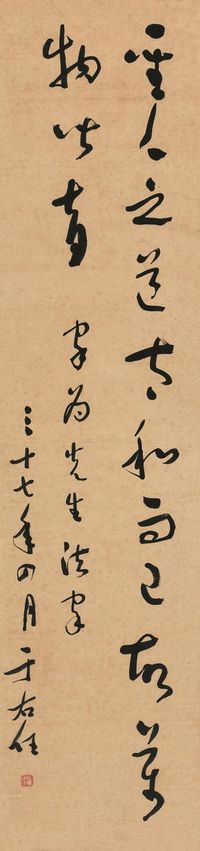 聖人之道太和而已故萬
物皆育
為先生法家
三十七年四月于右任